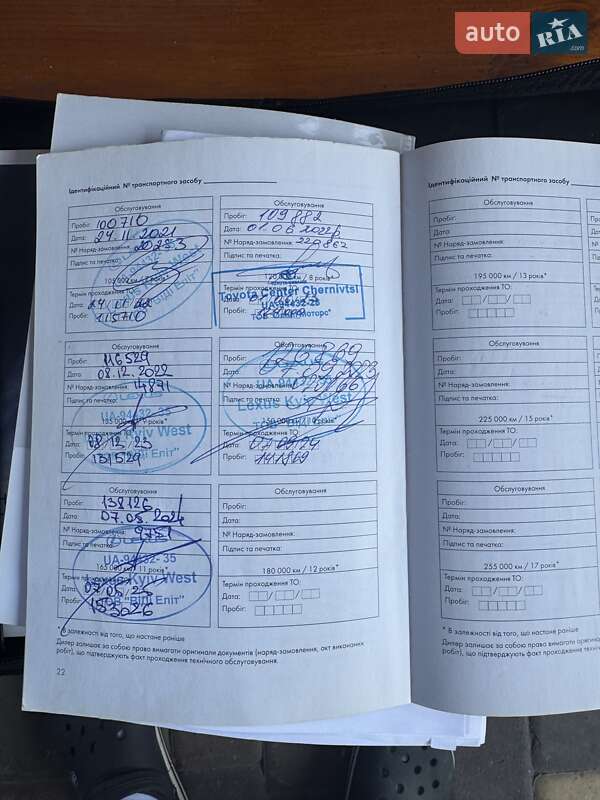 auto RIA .com
Ідентифікаційний № транспортного засобу
Обслуговування
Пробіг: 100710
Дата: 24.11.2021
№ Наряд-замовлення: 20283
Підпис та печатка:
Термін проходження ТО:
Пробіг: 115710
Обслуговування
Пробіг: 109882
Дата: 01.06.2022р
№ Наряд-замовлення: 229862
Підпис та печатка:
Термін проходження
Toyota Center Chernivtsi
UA-94432-25
Обслуговування
Пробіг: 116529
Дата: 08.12.2022
№ Наряд-замовлення: 14871
Підпис та печатка:
UA-94432-35
Lexus Kyiv West
Дата: 08.12.23
Пробіг: 131529
126869
Дата:
№ Наряд-замовлення:
Підпис та печатка:
Lexus Kyiv West
Дата: 07.09.24
Пробіг: 141869
Обслуговування
Пробіг: 138126
Дата: 07.05.2024
№ Наряд-замовлення: 9751
Підпис та печатка:
UA-94432-35
165 000 км / 11 років*
Lexus Kyiv West
ТОВ "Віді Еліт"
Дата: 07.05.25
Пробіг: 153026
Обслуговування
Пробіг:
Дата:
№ Наряд-замовлення:
Підпис та печатка:
180 000 км / 12 років*
Термін проходження ТО:
Дата:
Пробіг:
* В залежності від того, що настане раніше
Дилер залишає за собою право вимагати оригінали документів (наряд-замовлення, акт виконаних
робіт), що підтверджують факт проходження технічного обслуговування.
22
Ідентифікаційний № транспортного засобу
Обслуговування
Пробіг:
Дата:
№ Наряд-замовлення:
Підпис та печатка:
195 000 км / 13 років*
Термін проходження ТО:
Дата:
Пробіг:
Обслуговування
Пробіг:
Дата:
№ Наряд-замовлення:
Підпис та печатка:
225 000 км / 15 років*
Термін проходження ТО:
Дата:
Пробіг:
Обслуговування
Пробіг:
Дата:
№ Наряд-замовлення:
Підпис та печатка:
255 000 км / 17 років*
Термін проходження ТО:
Дата:
Пробіг:
* В залежності від того, що настане раніше
Дилер залишає за собою право вимагати ори
робіт), що підтверджують факт проходження